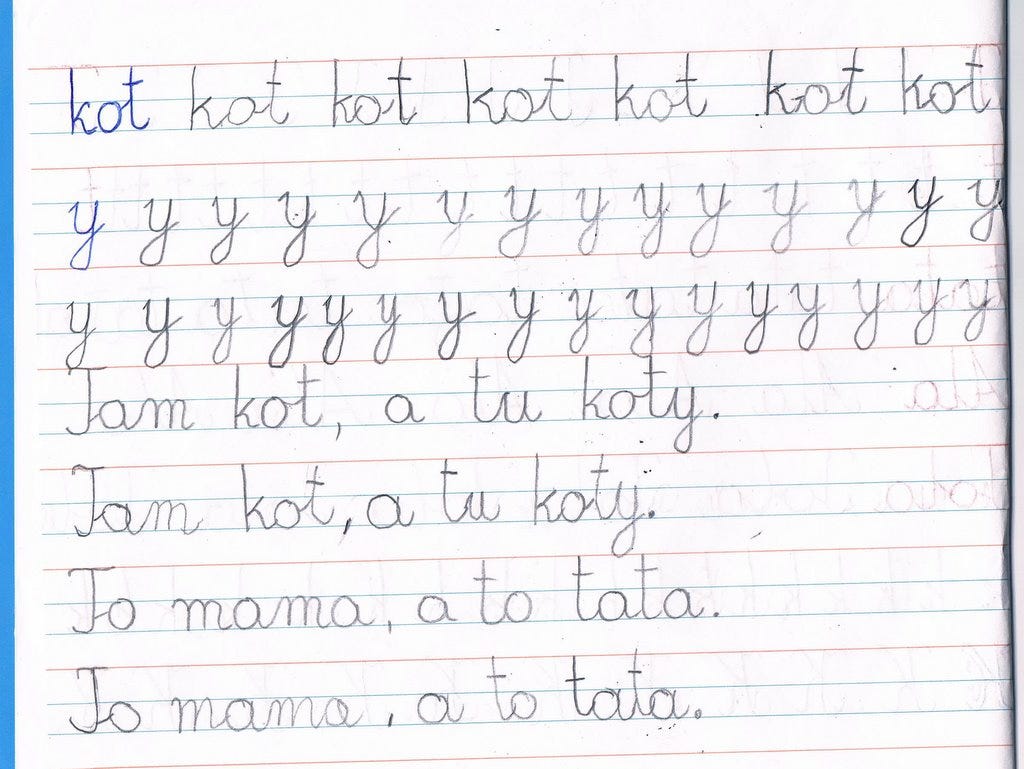 kot kot kot kot kot kot kot
y y y y y y y y y y y y y y
y y y y y y y y y y y y y y y y
Tam kot, a tu koty.
Tam kot, a tu koty.
To mama, a to tata.
To mama, a to tata.